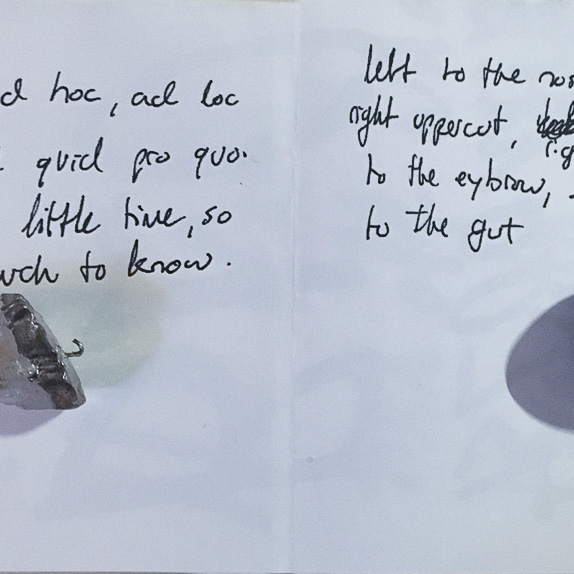 d hoc, ad loc
quid pro quo.
little time, so
uch to know.
left to the nos
right uppercut,
to the eybrow,
to the gut